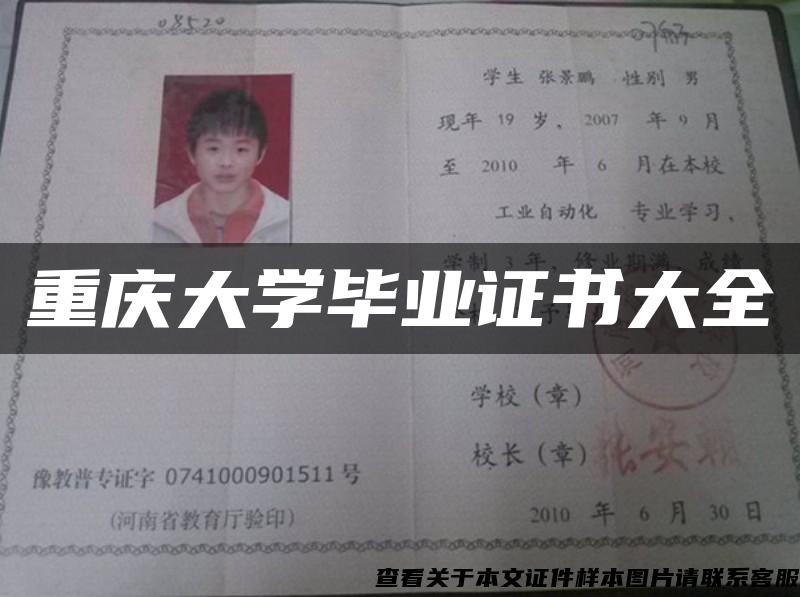 08520
学生 张景鹏 性别 男
现年 19 岁，2007 年 9 月
至 2010 年 6 月在本校
工业自动化 专业学习，
学制 3 年，修业期满，成绩
重庆大学毕业证书大全
学校（章）
校长（章）
豫教普专证字 0741000901511 号
（河南省教育厅验印）
2010 年 6 月 30 日
查看关于本文证件样本图片请联系客服